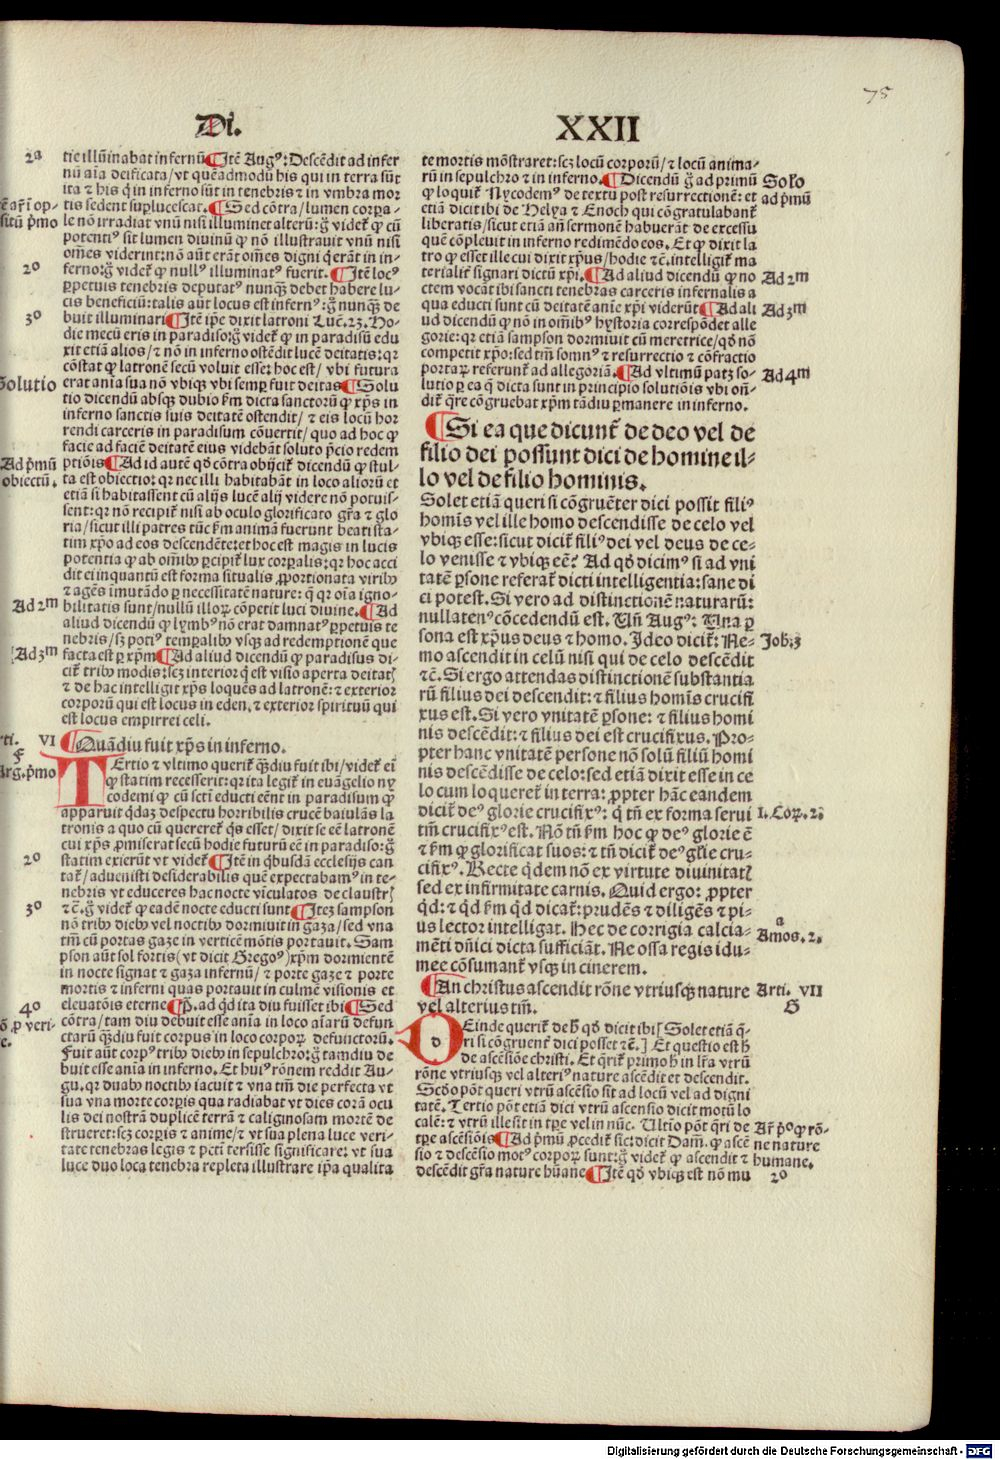 75
Di. XXII
2ᵃ
tie illūinabat infernū ¶ Itē Augꝰ: Descēdit ad infer
nū aīa deificata/vt quēadmodū his qui in terra sūt
ita ⁊ his q̄ in inferno sūt in tenebris ⁊ in vmbra mor
tis sedent suꝑlucescat. ¶ Sed cōtra/lumen corꝑa-
le nō irradiat vnū nisi illuminet alterū: g̃ videt᷑ ꝙ cū
potentiꝰ sit lumen diuinū ꝙ nō illustrauit vnū nisi
oīmes viderint: nō aūt erāt oīmes digni q̄ erāt in in-
2º
ferno: g̃ videt᷑ ꝙ nullꝰ illuminatꝰ fuerit. ¶ Itē locꝰ
ꝑpetuis tenebris deputatꝰ nunqꝫ debet habere lu-
cis beneficiū: talis aūt locus est infernꝰ: g̃ nunqꝫ de
3º
buit illuminari ¶ Itē ip̄e dixit latroni Luc̄. 23. Ho-
die mecū eris in paradiso: g̃ videt᷑ ꝙ in paradisū edu
xit etiā alios/⁊ nō in inferno ostēdit lucē deitatis: qꝛ
cōstat ꝙ latronē secū voluit esse: hoc est/vbi futura
Solutio
erat anīa sua nō vbiqꝫ vbi semꝑ fuit deitas ¶ Solu
tio dicendū absqꝫ dubio ẜm dicta sanctorū ꝙ xp̄s in
inferno sanctis suis deitatē ostendit/⁊ eis locū hor
rendi carceris in paradisum cōuertit/quo ad hoc ꝙ
facie ad faciē deitatē eius videbāt soluto p̄cio redem
Ad p̄mū
ptiōis ¶ Ad id autē qd̄ cōtra obijcit᷑ dicendū ꝙ stul-
obiectū.
ta est obiectio: qꝛ nec illi habitabāt in loco aliorū et
etiā si habitassent cū alijs lucē alij videre nō potuis-
sent: qꝛ nō recipit᷑ nisi ab oculo glorificato gr̄a ⁊ glo
ria/sicut illi patres tūc ẜm animā fuerunt beati sta-
tim xp̄o ad eos descendēte: et hoc est magis in lucis
potentia ꝙ ab oīmibꝫ ꝑcipit᷑ lux corꝑalis: qꝛ hoc acci
dit ei inquantū est forma situalis ꝓportionata viribꝫ
⁊ agēs imutādo ꝑ necessitatē nature: q̄ qꝛ oīa igno-
Ad 2ᵐ
bilitatis sunt/nullū illoꝝ cōpetit luci diuine. ¶ Ad
aliud dicendū ꝙ lymbꝰ nō erat damnatꝰ ꝑpetuis te
nebris/sꝫ potiꝰ temꝑalibꝫ vsqꝫ ad redemptionē que
Ad 3ᵐ
facta est ꝑ xp̄m ¶ Ad aliud dicendū ꝙ paradisus di-
cit᷑ tribꝫ modis: scꝫ interior q̄ est visio aperta deitatꝭ
⁊ de hac intelligit xp̄s loquēs ad latronē: ⁊ exterior
corporū qui est locus in eden. ⁊ exterior spirituū qui
est locus empirrei celi.
VI ¶ Quādiu fuit xp̄s in inferno.
TErtio ⁊ vltimo querit᷑ qꝫdiu fuit ibi/videt᷑ eī
ꝙ statim recesserit: qꝛ ita legit᷑ in euāgelio ny
codemi ꝙ cū scti educti eēnt in paradisum ꝙ
apparuit qdaꝫ despectu horribilis crucē baiulās la
tronis a quo cū quereret᷑ qs esset/dixit se eē latronē
cui xp̄s ꝓmiserat secū hodie futurū eē in paradiso: g̃
2º
statim exierūt vt videt᷑ ¶ Itē in qbusdā ecclesijs can
tat᷑/aduenisti desiderabilis quē expectabamꝰ in te-
nebris vt educeres hac nocte vīculatos de claustrꝭ
3º
⁊c̄. g̃ videt᷑ ꝙ eadē nocte educti sunt ¶ Itez sampson
nō tribꝫ diebꝫ vel noctibꝫ dormiuit in gaza/sed vna
tm̄ cū portas gaze in verticē mōtis portauit. Sam
pson aūt sol fortis (vt dicit Gregoꝰ) xp̄m dormientē
in nocte signat ⁊ gaza infernū/⁊ porte gaze ⁊ porte
mortis ⁊ inferni quas portauit in culmē visionis et
4º
eleuatōis eterne ¶ p̄. ad qd ita diu fuisset ibi ¶ Sed
cōtra/tam diu debuit esse anīa in loco aīarū defun
ctarū qꝫdiu fuit corpus in loco corpoꝝ defunctorū.
Fuit aūt corpꝰ tribꝫ diebꝫ in sepulchro: g̃ tamdiu de
buit esse anīa in inferno. Et huiꝰ rōnem reddit Au-
gu. qꝛ duabꝫ noctibꝫ iacuit ⁊ vna tm̄ die perfecta vt
sua vna morte corpis qua radiabat vt dies corā ocu
lis dei nostrā duplicē terrā ⁊ caliginosam mortē de
strueret: scꝫ corpis ⁊ anime/⁊ vt sua plena luce veri-
tate tenebras legis ⁊ pctī tersisse significare: vt sua
luce duo loca tenebra repleta illustrare ip̄a qualita
te mortis mōstraret: scꝫ locū corporū/⁊ locū anima-
rū in sepulchro ⁊ in inferno. ¶ Dicendū g̃ ad primū
Solo
ꝙ loquit᷑ Nycodemꝰ de textu post resurrectionē: et
ad p̄mū
etiā dicit ibi de Helya ⁊ Enoch qui cōgratulabant᷑
liberatis/sicut etiā añ sermonē habuerāt de excessu
quē cōpleuit in inferno redimēdo eos. Et ꝙ dixit la
tro ꝙ esset ille cui dixit xpūs/hodie ⁊c̄. intelligit᷑ ma
terialit᷑ signari dictū xp̄i. ¶ Ad aliud dicendū ꝙ no
Ad 2ᵐ
ctem vocāt ibi sancti tenebras carceris infernalis a
qua educti sunt cū deitatē anīe xp̄i viderūt ¶ Ad ali
Ad 3ᵐ
ud dicendū ꝙ nō in oīmibꝫ hystoria correspōdet alle
gorie: qꝛ etiā sampson dormiuit cū meretrice/qd̄ nō
competit xp̄o: sed tm̄ somnꝰ ⁊ resurrectio ⁊ cōfractio
portaꝝ referunt᷑ ad allegoriā. ¶ Ad vltimū patꝫ so-
Ad 4ᵐ
lutio ꝑ ea q̄ dicta sunt in principio solutiōis vbi oñ-
dit᷑ qr̄e cōgruebat xp̄m tādiu ꝑmanere in inferno.
¶ Si ea que dicunt᷑ de deo vel de
filio dei possunt dici de homine il-
lo vel de filio hominis.
Solet etiā queri si cōgruēter dici possit filiꝰ
homīs vel ille homo descendisse de celo vel
vbiqꝫ esse: sicut dicit᷑ filiꝰ dei vel deus de ce-
lo venisse ⁊ vbiqꝫ eē? Ad qd̄ dicimꝰ si ad vni
tatē ꝑsone referat᷑ dicti intelligentia: sane di
ci potest. Si vero ad distinctionē naturarū:
nullatenꝰ cōcedendū est. Vñ Augꝰ: Vna ꝑ
sona est xpūs deus ⁊ homo. Ideo dicit᷑: Ne-
Joh. 3
mo ascendit in celū nisi qui de celo descēdit
⁊c̄. Si ergo attendas distinctionē substantia
rū filius dei descendit: ⁊ filius homīs crucifi
xus est. Si vero vnitatē ꝑsone: ⁊ filius homi
nis descēdit: ⁊ filius dei est crucifixus. Pro-
pter hanc vnitatē persone nō solū filiū homi
nis descēdisse de celo: sed etiā dixit esse in ce
lo cum loqueret᷑ in terra: ꝓpter hāc eandem
dicit᷑ deꝰ glorie crucifixꝰ: q̄ tn̄ ex forma serui
1. Cor. 2.
tm̄ crucifixꝰ est. Nō tn̄ ẜm hoc ꝙ deꝰ glorie ē
⁊ ẜm ꝙ glorificat suos: ⁊ tn̄ dicit᷑ deꝰ gl̄ie cru-
cifixꝰ. Recte qdem nō ex virtute diuinitatꝭ
sed ex infirmitate carnis. Quid ergo: ꝓpter
qd: ⁊ qd ẜm qd dicat᷑: prudēs ⁊ diligēs ⁊ pi-
us lector intelligat. Hec de corrigia calcia-
mēti dn̄ici dicta sufficiāt. Ne ossa regis idu-
a
Amos. 2.
mee cōsumant᷑ vsqꝫ in cinerem.
¶ An christus ascendit rōne vtriusqꝫ nature
Arti. VII
vel alterius tm̄.
G
DEinde querit᷑ de h̄ qd̄ dicit ibi [Solet etiā q̄-
ri si cōgruent᷑ dici posset ⁊c̄.] Et questio est h̄
de ascēsiōe christi. Et q̄rit᷑ primo h̄ in lr̄a vtrū
rōne vtriusqꝫ vel alteriꝰ nature ascēdit et descendit.
Scd̄o pōt queri vtrū ascēsio sit ad locū vel ad digni
tatē. Tertio pōt etiā dici vtrū ascensio dicit motū lo
calē: ⁊ vtrū ille sit in tꝑe vel in nūc. Ultīo pōt q̄ri de
tꝑe ascēsiōis ¶ Ad p̄mū ꝓcedit᷑ sic: dicit Dam̄. ꝙ ascē
sio ⁊ descēsio motꝰ corpoꝝ sunt: g̃ videt᷑ ꝙ ascendit ⁊
ne nature
humane.
descēdit gr̄a nature hūane ¶ Itē qd̄ vbiqꝫ est nō mu
2º
Digitalisierung gefördert durch die Deutsche Forschungsgemeinschaft - DFG